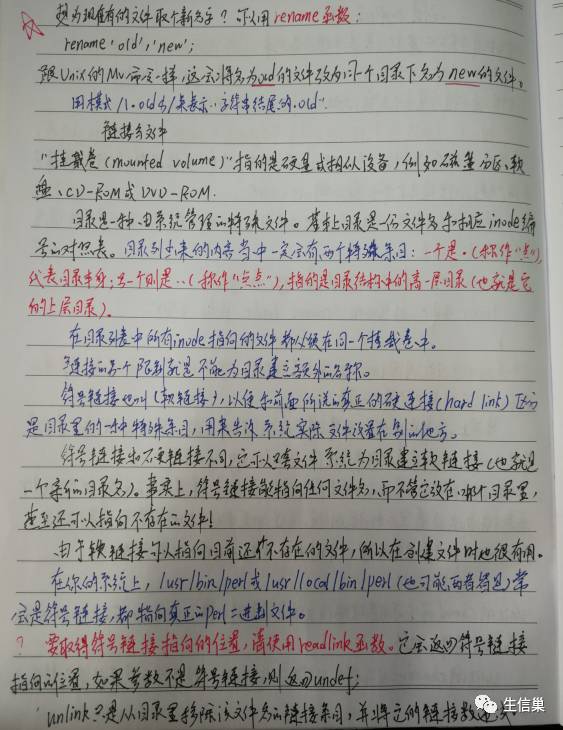 想为现有的文件取个新名字？可以用rename函数：
rename 'old','new';
跟Unix的Mv命令一样，这会将名为old的文件改为同一个目录下名为new的文件。
用模式/\.old$/来表示"字符串结尾的.old".
链接与文件
"挂载卷(mounted volume)"指的是硬盘或相似设备，例如磁盘分区、软
盘、CD-ROM或DVD-ROM.
目录是一种由系统管理的特殊文件。基本上目录是一份文件名和相应inode编
号的对照表。目录列出来的内容当中一定会有两个特殊条目：一个是.(称作"点"),
代表目录本身；另一个则是..(称作"点点"),指的是目录结构中的高一层目录(也就是它
的上层目录)。
在目录列表中所有inode指向的文件都必须在同一个挂载卷中。
硬连接的另个限制就是不能为目录建立额外的名称。
符号链接也叫(软链接),以便和前面所说的真正的硬连接(hard link)区分
是目录里的一种特殊条目，用来告诉系统实际文件放置在别的地方。
符号链接和硬链接不同，它可以跨文件系统为目录建立软链接(也就是
一个新的目录名)。事实上，符号链接能指向任何文件名，而不管它放在哪个目录里，
甚至还可以指向不存在的文件！
由于软链接可以指向目前还不存在的文件，所以在创建文件时也很有用。
在你的系统上，/usr/bin/perl或/usr/local/bin/perl(也可能两者皆是)常
会是符号链接，都指向真正的perl二进制文件。
? 要取得符号链接指向的位置，请使用readlink函数。它会返回符号链接
指向的位置，如果参数不是符号链接，则返回undef;
unlink只是从目录里移除该文件名的链接条目，并将它的链接数递减
生信巢